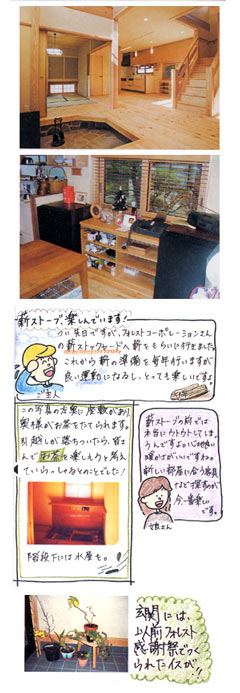 薪ストーブ楽しんでいます!
つい先日ですが、フォレストコーポレーションさん
の薪ストックヤードへ薪をもらいに行きました。
これから薪の準備を毎年行いますが
良い運動になるし、とっても楽しいです。
ご主人
この写真の左奥に座敷があり
奥様がお茶をたてられます。
引越しが落ちついたら、皆さ
んでお茶を楽しもうと考え
ていらっしゃるとのことでした!
階段下には水屋も。
薪ストーブの前では
本当にウトウトしてしま
うんですよ。心地の良い
暖かさがいいですね。
新しい部屋に合う家具
などを探すのが
今一番楽しい
です。
娘さん
玄関には、
以前フォレスト
感謝祭でつく
られたイスが!!